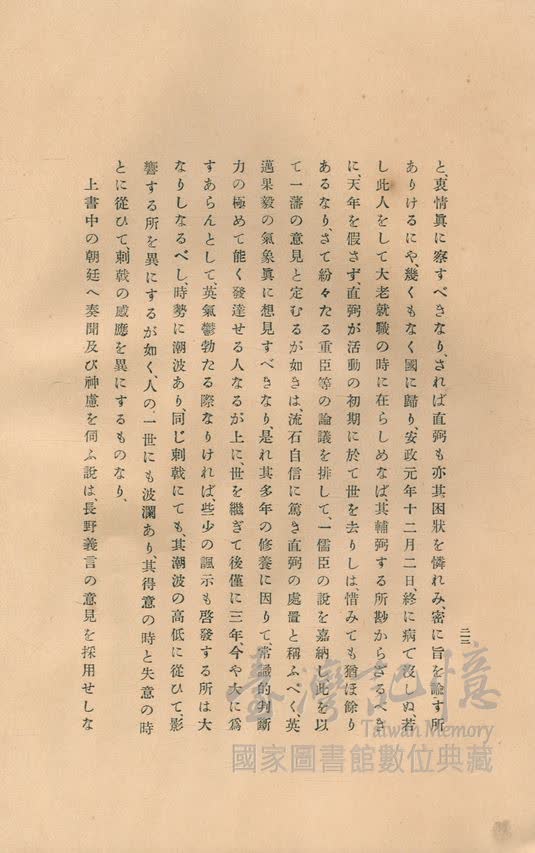 と、衷情眞に察すべきなり、されば直弼も亦其困狀を憐れみ、密に旨を諭す所
ありけるにや、幾くもなく國に歸り、安政元年十二月二日、終に病て沒しぬ、若
し此人をして大老就職の時に在らしめなば其輔弼する所尠からざるべき
に、天年を假さず、直弼が活動の初期に於て世を去りしは惜みても猶ほ餘り
あるなり、さて紛々たる重臣等の論議を排して、一儒臣の說を嘉納し此を以
て一藩の意見と定むるが如きは、流石自信に篤き直弼の處置と稱ふべく、英
邁果毅の氣象眞に想見すべきなり、是れ其多年の修養に因りて、常識的判斷
力の極めて能く發達せる人なるが上に、世を繼ぎて後僅に三年、今や大に爲
すあらんとして、英氣鬱勃たる際なりければ、些少の諷示も啓發する所は大
なりしなるべし、時勢に潮波あり、同じ刺戟にても、其潮波の高低に從ひて影
響する所を異にするが如く、人の一世にも波瀾あり、其得意の時と失意の時
とに從ひて、刺戟の感應を異にするものなり、
上書中の朝廷へ奏聞及び神慮を伺ふ說は、長野義言の意見を採用せしな
二三
臺灣記憶
Taiwan Memory
國家圖書館數位典藏